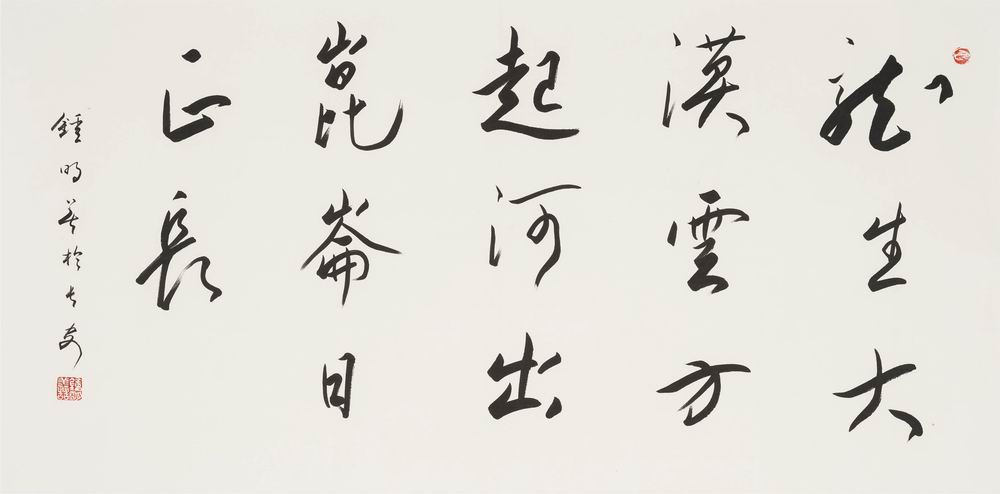 龍生大
漠雲方
起河出
崑崙日
正長
鍾明善於長安